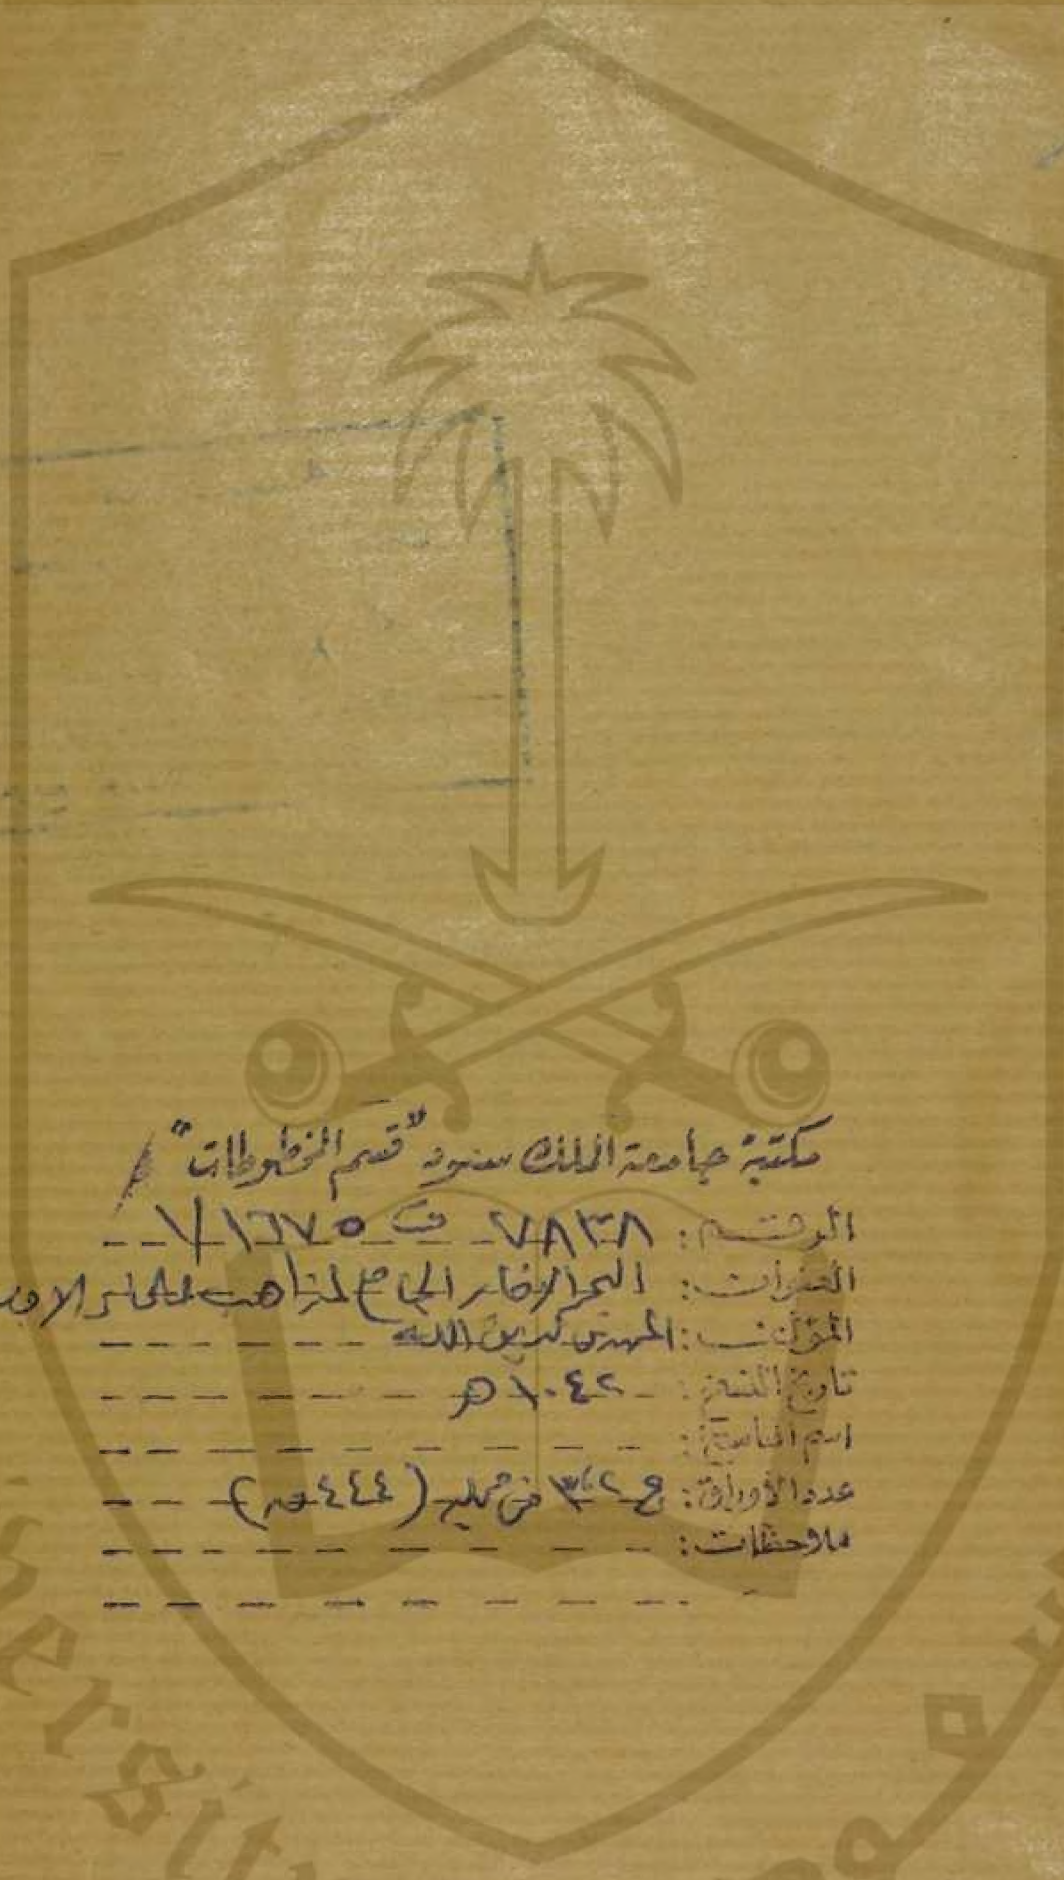 مكتبة جامعة الملك سعود "قسم المخطوطات"
الرقم: ٧٨٣٨ ف ١٦٧٥/٧
العنوان: البحر الزخار الجامع لمذاهب علماء الامصار
المؤلف: المهدى لدين الله
تاريخ النسخ: ١٠٤٢ هـ
اسم الناسخ:
عدد الأوراق: ج ٢، ٣ في مجلد (٤٤٤ ص)
ملاحظات:
versit